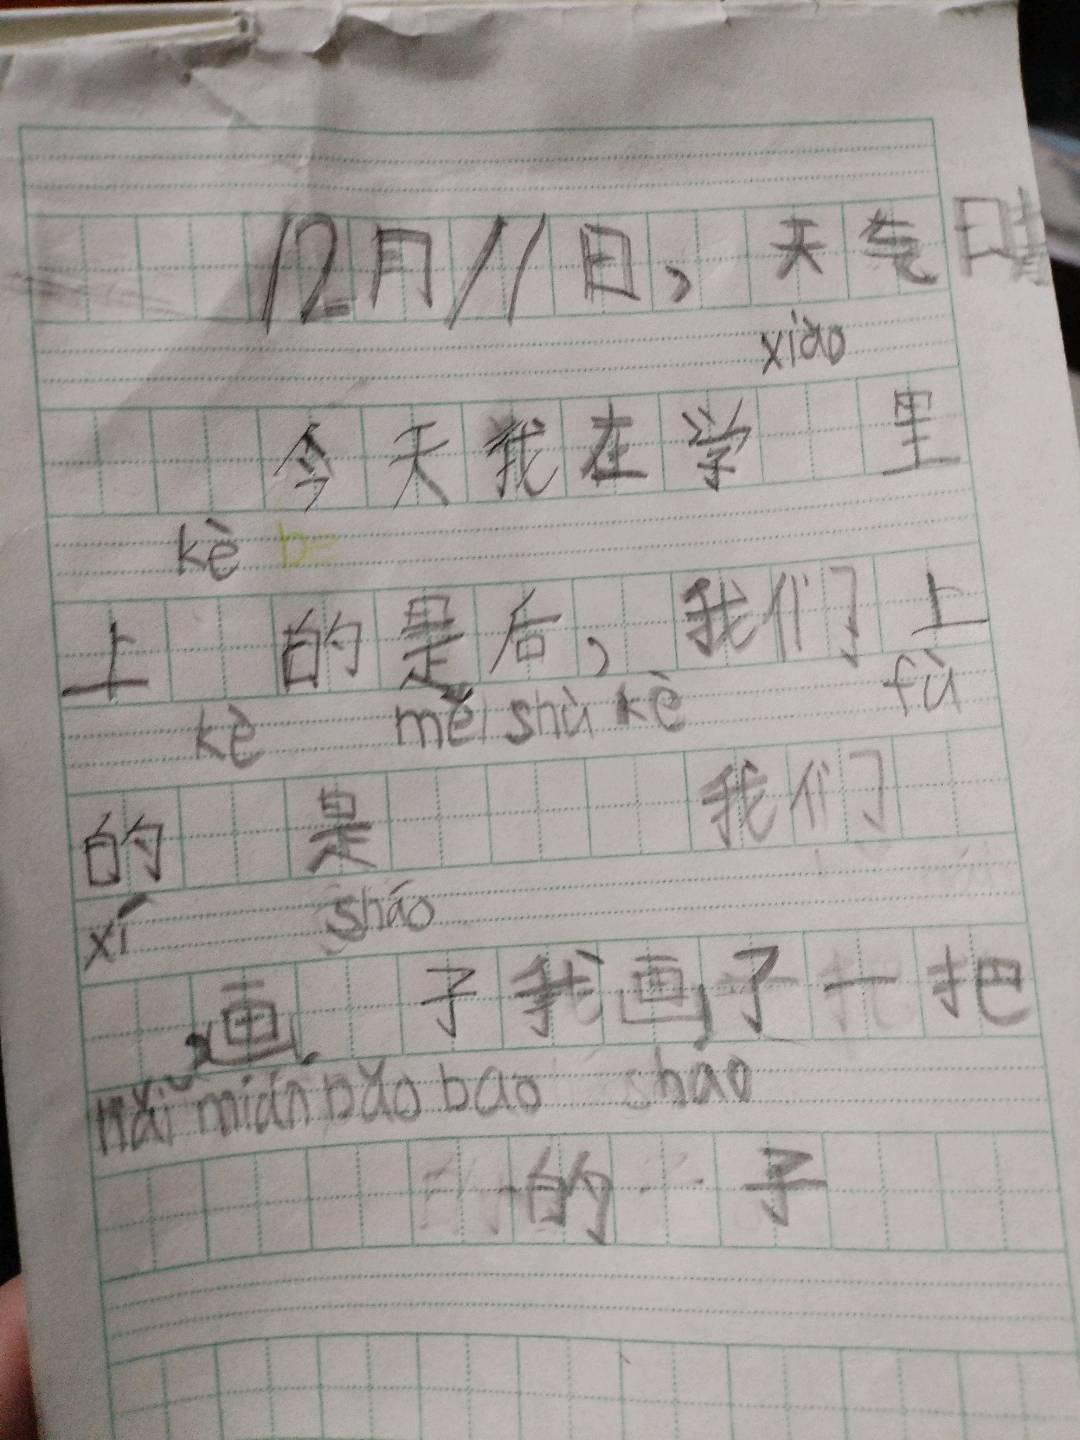 12月11日，天气晴
xiào
今天我在学 里
kè
上 的是后，我们上
kè měi shù kè fù
的 是 我们
xí sháo
画 子我画了一把
nǎi mián bǎo bao sháo
的 子